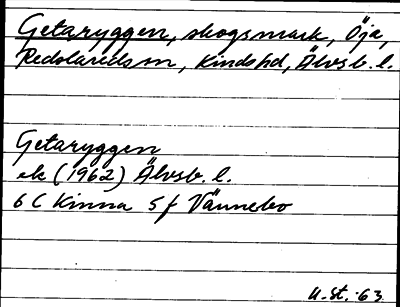 Getaryggen, skogsmark, Öja,
Redslareds sn, Kinds hd, Älvsb. l.
Getaryggen
ek (1962) Älvsb. l.
6 C Kinna 5 f Vännebo
U. St. 63